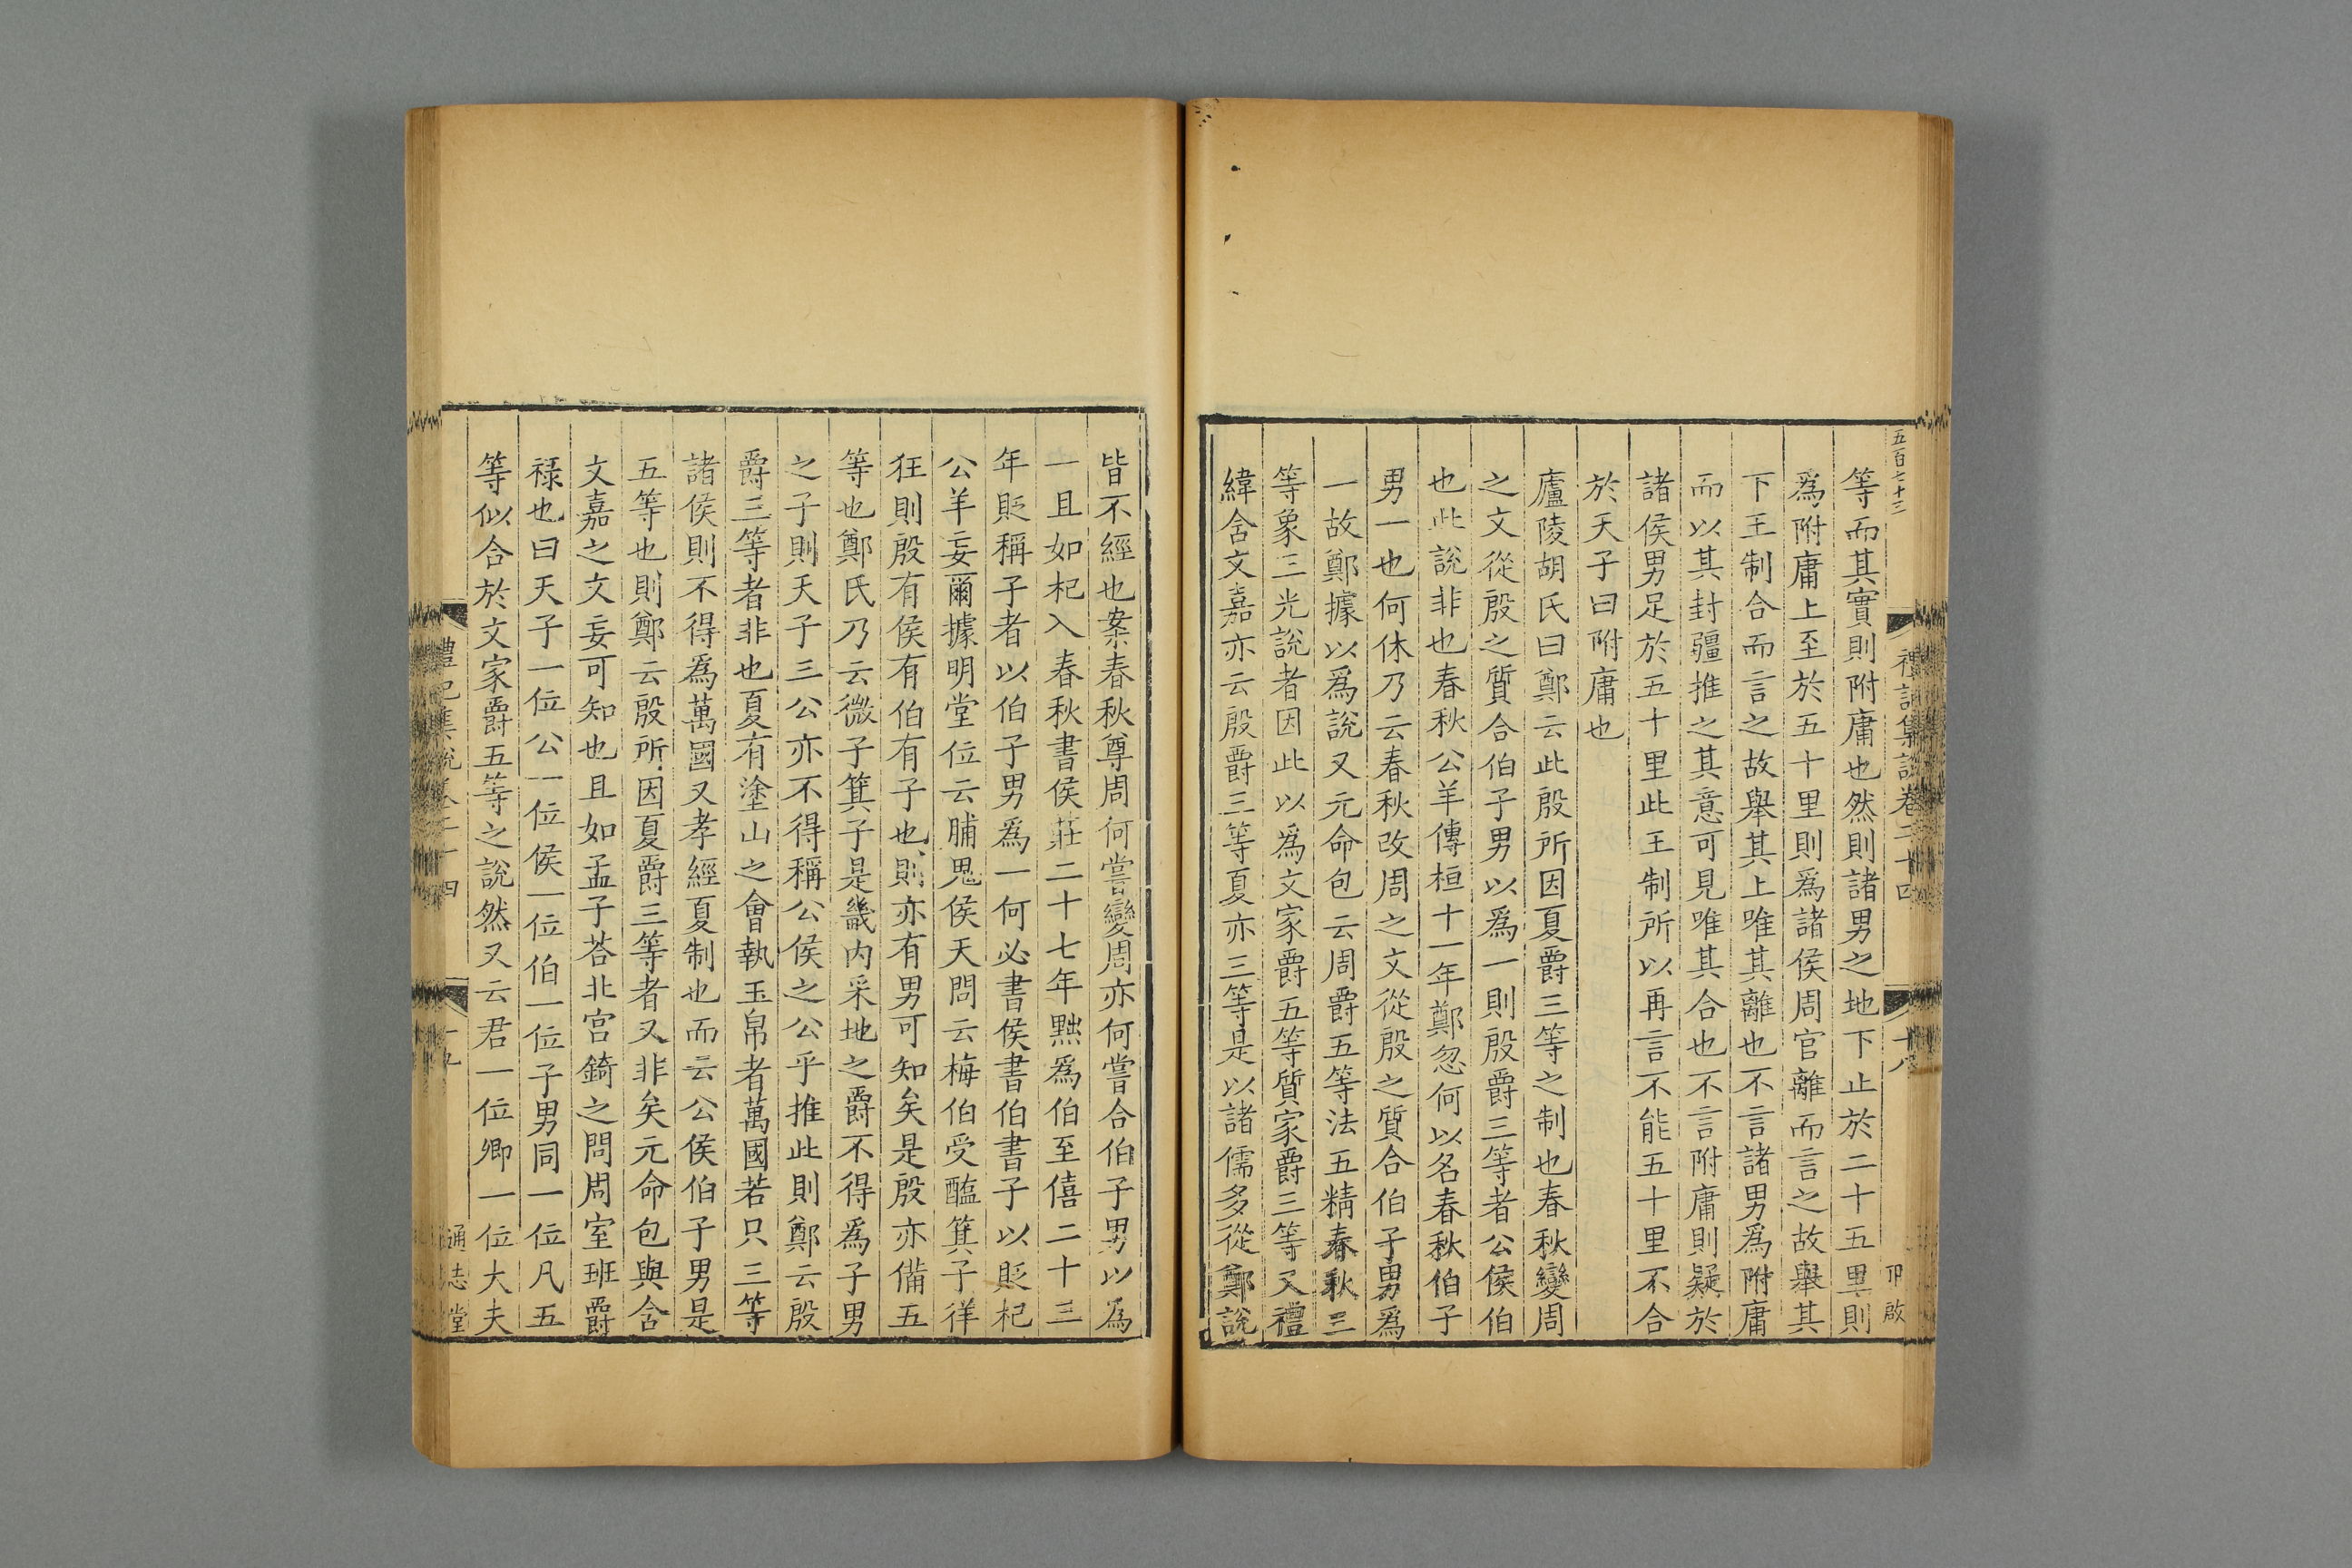 五百七十三
禮記集說卷二十四
十八
等而其實則附庸也然則諸男之地下止於二十五里則
爲附庸上至於五十里則爲諸侯周官離而言之故舉其
下王制合而言之故舉其上唯其離也不言諸男爲附庸
而以其封疆推之其意可見唯其合也不言附庸則疑於
諸侯男足於五十里此王制所以再言不能五十里不合
於天子曰附庸也
廬陵胡氏曰鄭云此殷所因夏爵三等之制也春秋變周
之文從殷之質合伯子男以爲一則殷爵三等者公侯伯
也此說非也春秋公羊傳桓十一年鄭忽何以名春秋伯子
男一也何休乃云春秋改周之文從殷之質合伯子男爲
一故鄭據以爲說又元命包云周爵五等法五精春秋三
等象三光說者因此以爲文家爵五等質家爵三等又禮
緯含文嘉亦云殷爵三等夏亦三等是以諸儒多從鄭說
皆不經也案春秋尊周何嘗變周亦何嘗合伯子男以爲
一且如杞入春秋書侯莊二十七年黜爲伯至僖二十三
年貶稱子者以伯子男爲一何必書侯書伯書子以貶杞
公羊妄爾據明堂位云脯鬼侯天問云梅伯受醢箕子徉
狂則殷有侯有伯有子也則亦有男可知矣是殷亦備五
等也鄭氏乃云微子箕子是畿內采地之爵不得爲子男
之子則天子三公亦不得稱公侯之公乎推此則鄭云殷
爵三等者非也夏有塗山之會執玉帛者萬國若只三等
諸侯則不得爲萬國又孝經夏制也而云公侯伯子男是
五等也則鄭云殷所因夏爵三等者又非矣元命包與含
文嘉之文妄可知也且如孟子荅北宮錡之問周室班爵
祿也曰天子一位公一位侯一位伯一位子男同一位凡五
等似合於文家爵五等之說然又云君一位卿一位大夫
禮記集說卷二十四
通志堂